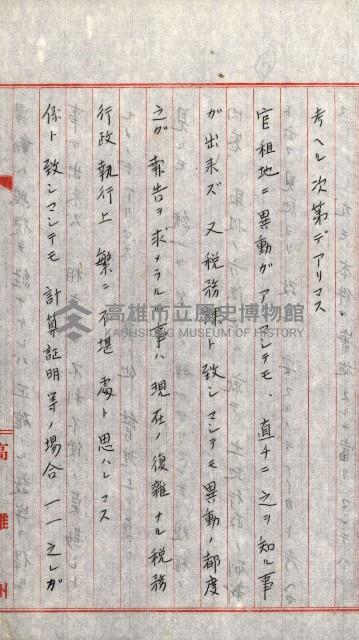 考ヘル次第デアリマス。
官租地ニ異動ガアリマシテモ、直チニ之ヲ知ル事
ガ出来ズ 又税務課ト致シマシテモ異動ノ都度
之ガ報告ヲ求メラルヽ事ハ現在ノ復雑ナル税務
行政執行上繁ニ不堪處ト思ハレマス
係ト致シマシテモ計算証明等ノ場合一一之レガ
高雄州
高雄市立歷史博物館
KAOHSIUNG MUSEUM OF HISTORY